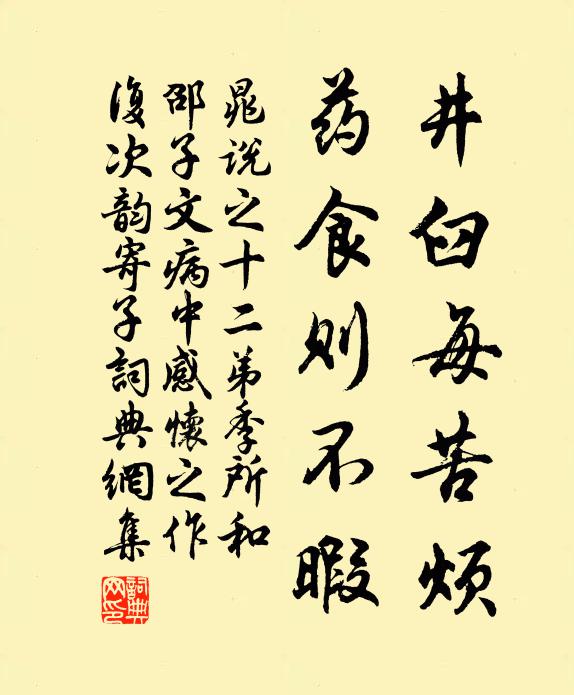 井臼每苦烦
药食则不暇
晁説之十二弟季所和
邵子文病中感懷之作
復次韵寄子詞典網集
詞典網印